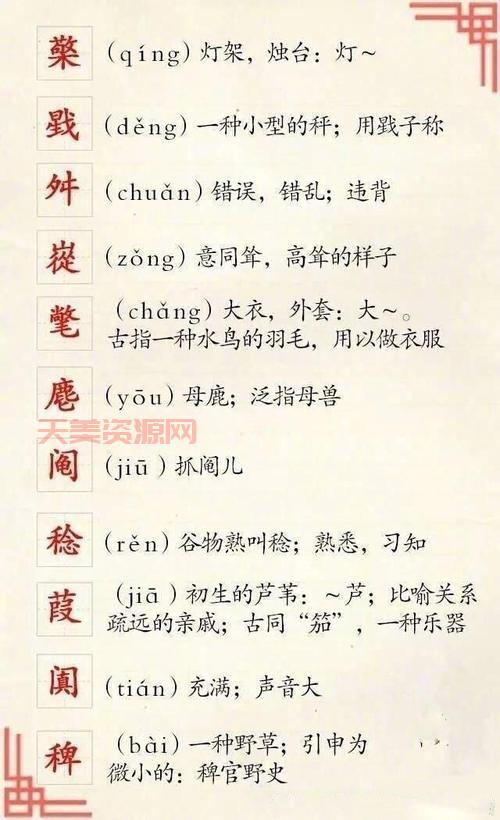 檠 (qíng)灯架，烛台：灯～
戥 (děng)一种小型的秤；用戥子称
舛 (chuǎn)错误，错乱；违背
嵸 (zǒng)意同耸，高耸的样子
氅 (chǎng)大衣，外套：大～。
古指一种水鸟的羽毛，用以做衣服
麀 (yōu)母鹿；泛指母兽
天美资源网
阄 (jiū)抓阄儿
稔 (rěn)谷物熟叫稔；熟悉，习知
葭 (jiā)初生的芦苇：～芦；比喻关系
疏远的亲戚；古同“笳”，一种乐器
阗 (tián)充满；声音大
稗 (bài)一种野草；引申为
微小的：稗官野史